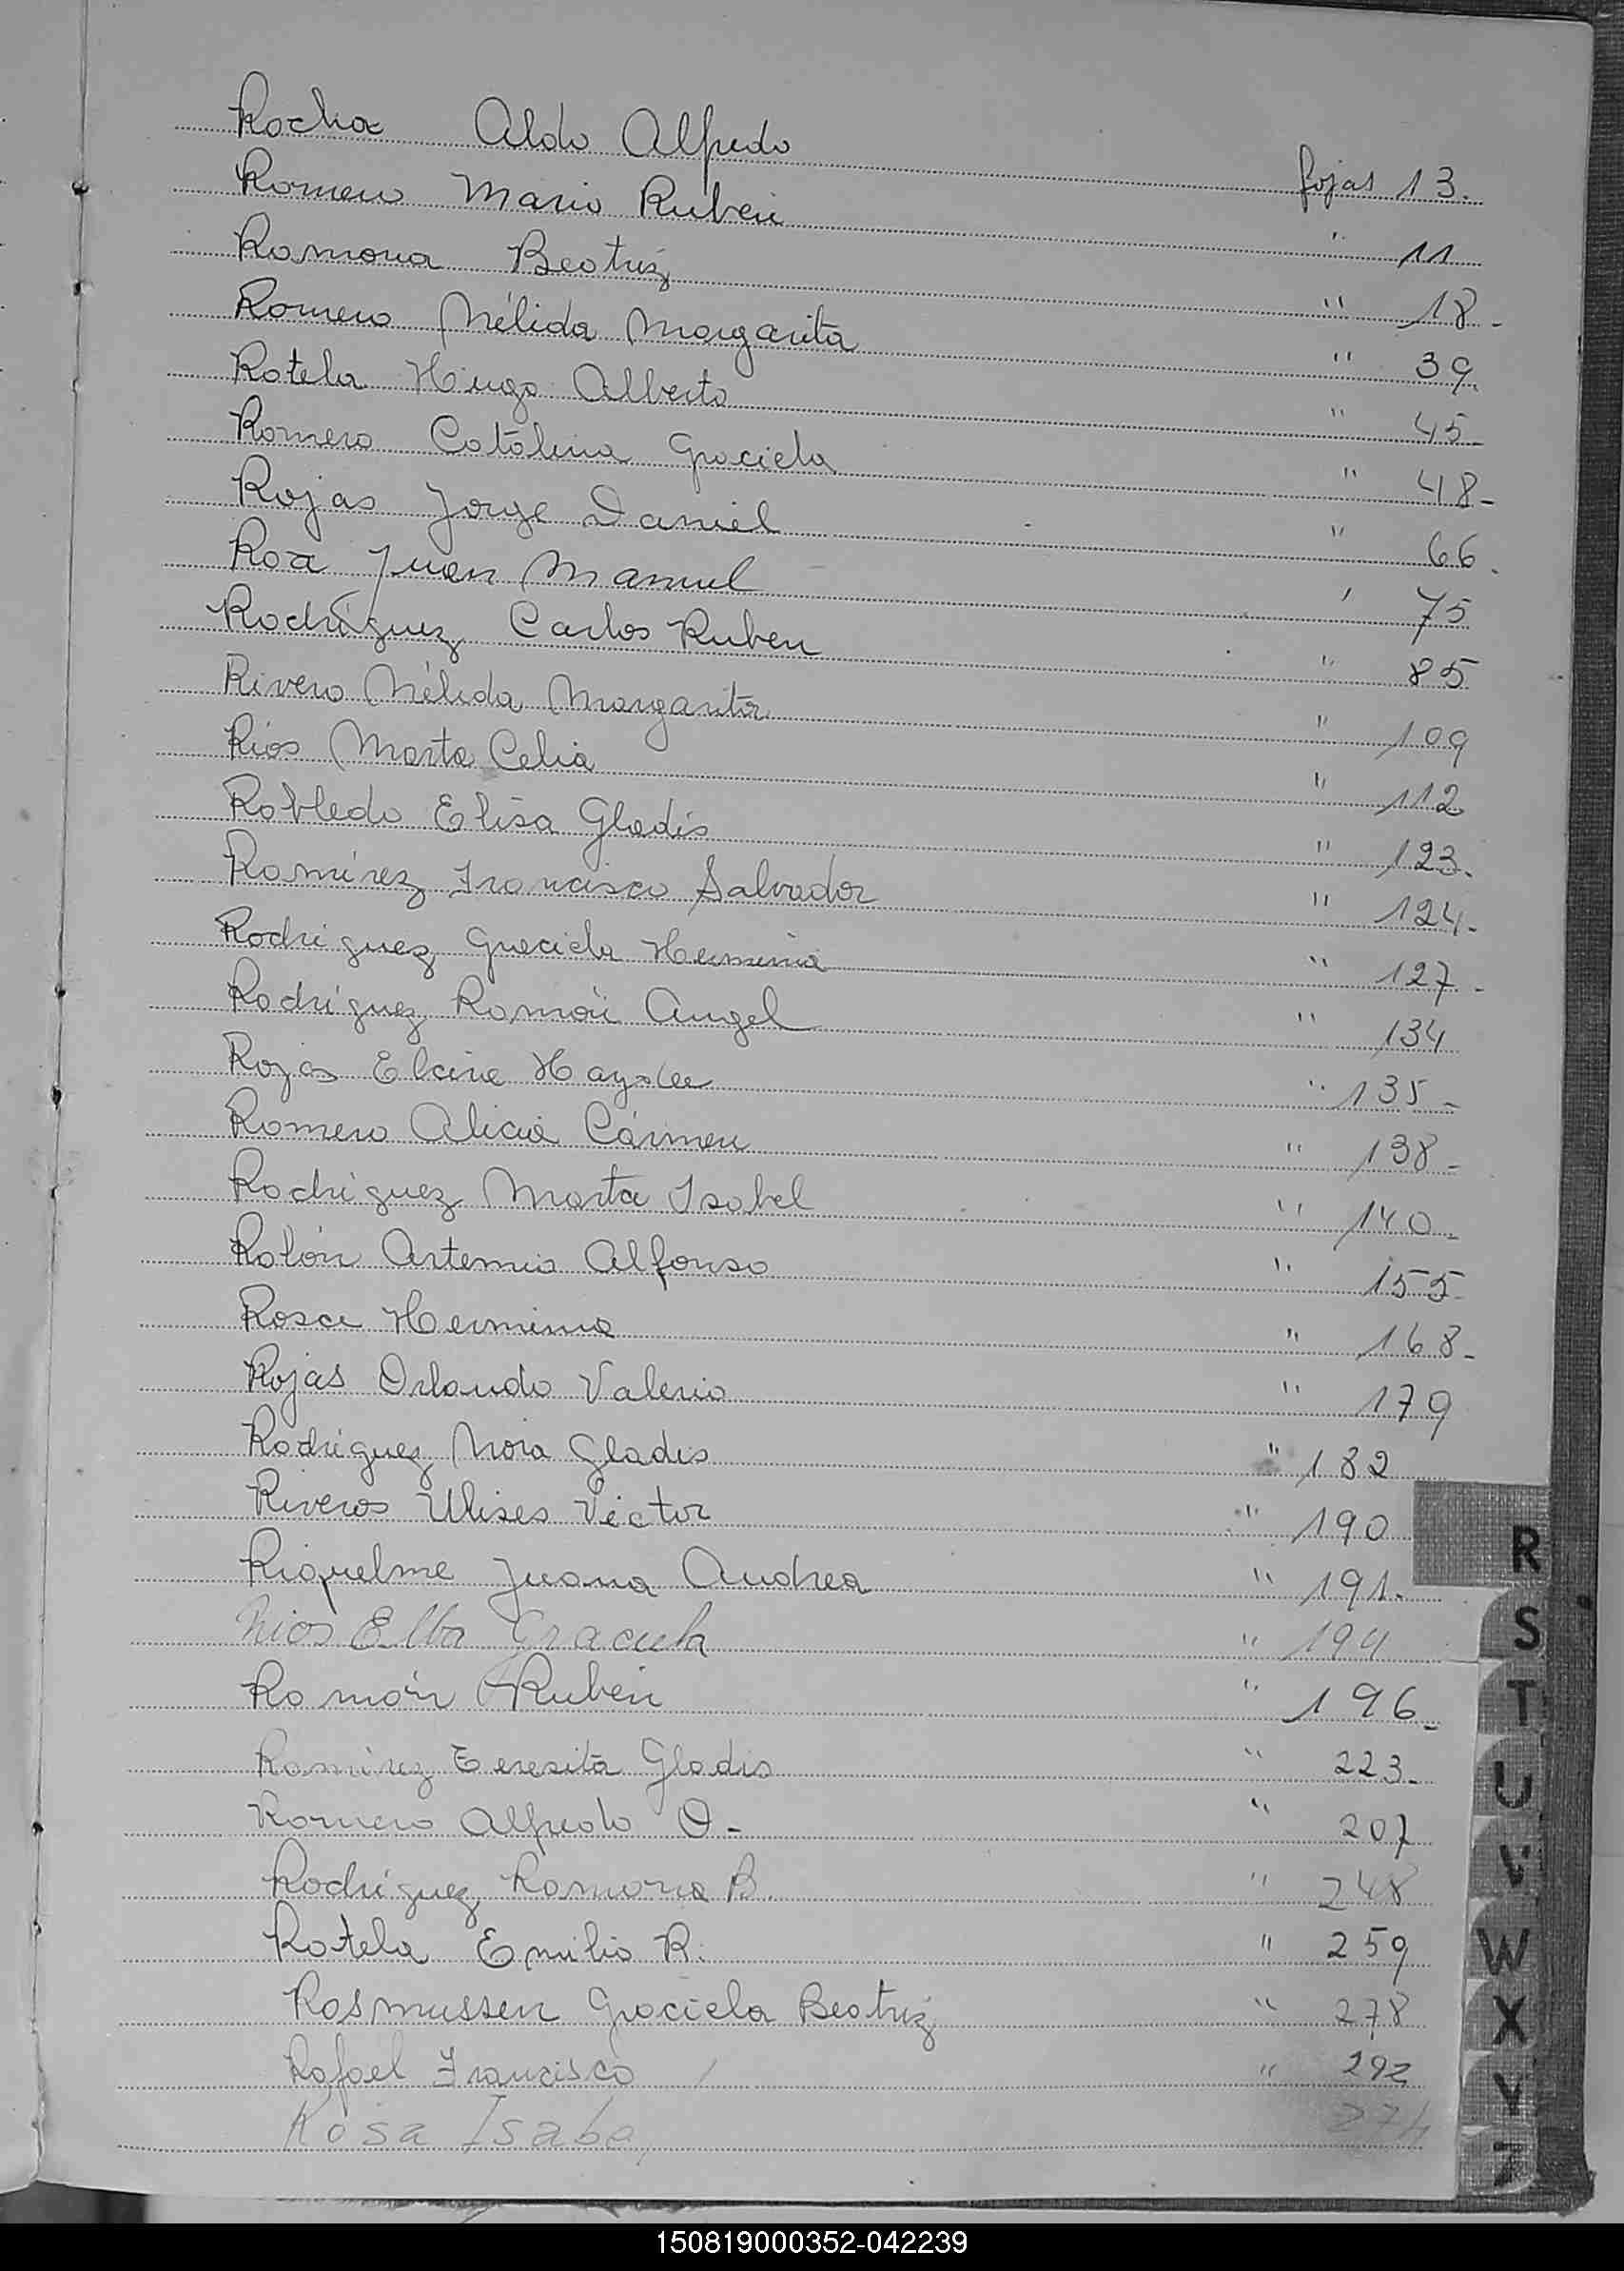 Rocha Aldo Alfredo fojas 13.
Romero Mario Ruben " 11
Ramona Beatriz " 18-
Romero Nélida Margarita " 39.
Rotela Hugo Alberto " 45-
Romero Catalina Graciela " 48-
Rojas Jorge Daniel " 66.
Roa Juan Manuel " 75
Rodríguez Carlos Ruben " 85
Rivero Nélida Margarita " 109
Rios Marta Celia " 112
Robledo Elisa Gladis " 123.
Ramírez Francisco Salvador " 124-
Rodriguez Graciela Herminia " 127-
Rodríguez Ramón Angel " 134
Rojas Elcira Haydee " 135-
Romero Alicia Cármen " 138-
Rodriguez Marta Isabel " 140-
Rolón Artemio Alfonso " 155-
Rosa Herminia " 168-
Rojas Orlando Valerio " 179
Rodriguez Nora Gladis " 182
Riveros Ulises Victor " 190
Riquelme Juana Andrea " 191-
Rios Elba Graciela " 194
Román Ruben " 196-
Ramírez Teresita Gladis " 223-
Romero Alfredo O- " 207
Rodríguez Ramona B. " 248
Rotela Emilio R. " 259
Rosmussen Graciela Beatriz " 278
Rafael Francisco " 292
Rosa Isabel 274
R
S
T
U
V
W
X
Y
Z
150819000352-042239